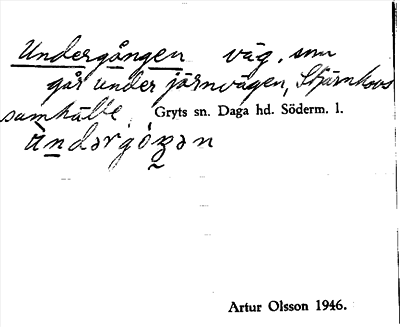 Undergången väg, som
går under järnvägen, Stjärnhovs
samhälle. Gryts sn. Daga hd. Söderm. l.
Artur Olsson 1946.